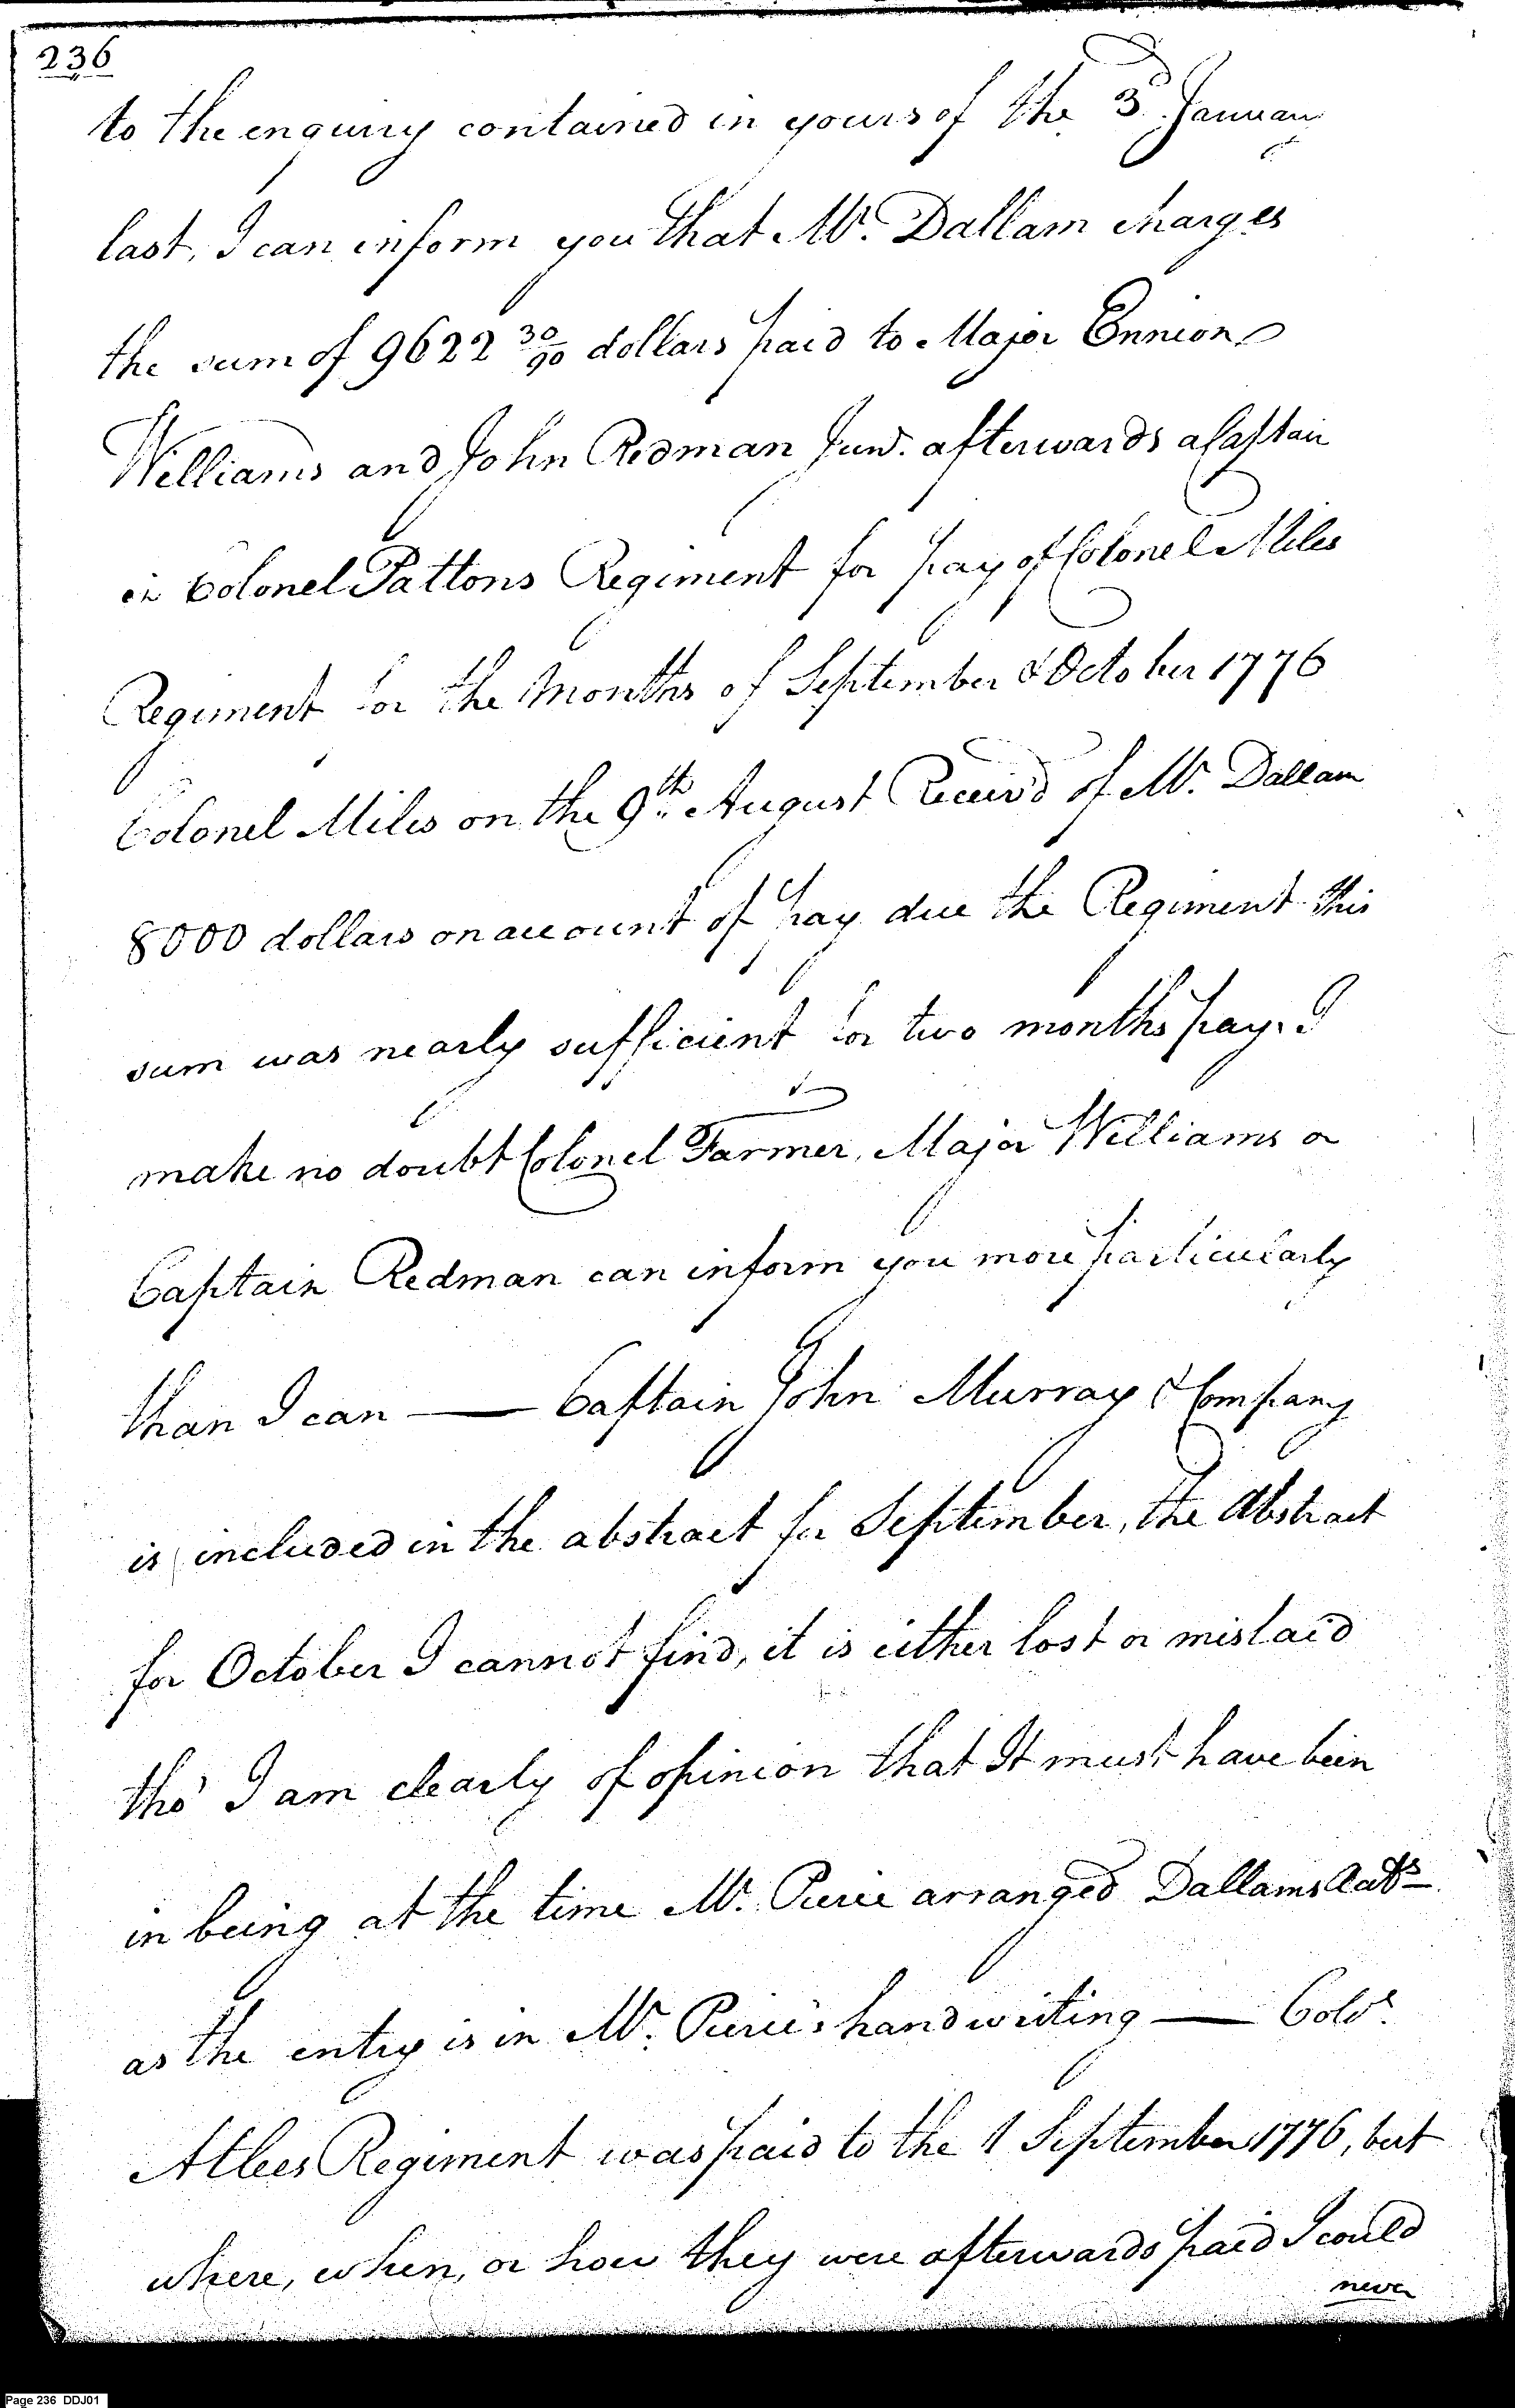 236
to the enquiry contained in yours of the 3d. January
last, I can inform you that Mr. Dallam charges
the sum of 9622 30/90 dollars paid to Major Ennion
Williams and John Redman Junr. afterwards a Captain
in Colonel Pattons Regiment for pay of Colonel Miles
Regiment for the Months of September & October 1776
Colonel Miles on the 9th. August Receiv'd of Mr. Dallam
8000 dollars on account of pay due the Regiment this
sum was nearly sufficient for two months pay. I
make no doubt Colonel Farmer, Major Williams or
Captain Redman can inform you more particularly
than I can — Captain John Murray & Company
is included in the abstract for September, the Abstract
for October I cannot find, it is either lost or mislaid
tho' I am clearly of opinion that It must have been
in being at the time Mr. Pierce arranged Dallams Accts
as the entry is in Mr. Pierce's handwriting — Colo.
Atlees Regiment was paid to the 1 September 1776, but
where, when, or how they were afterwards paid I could
never
Page 236 DDJ01